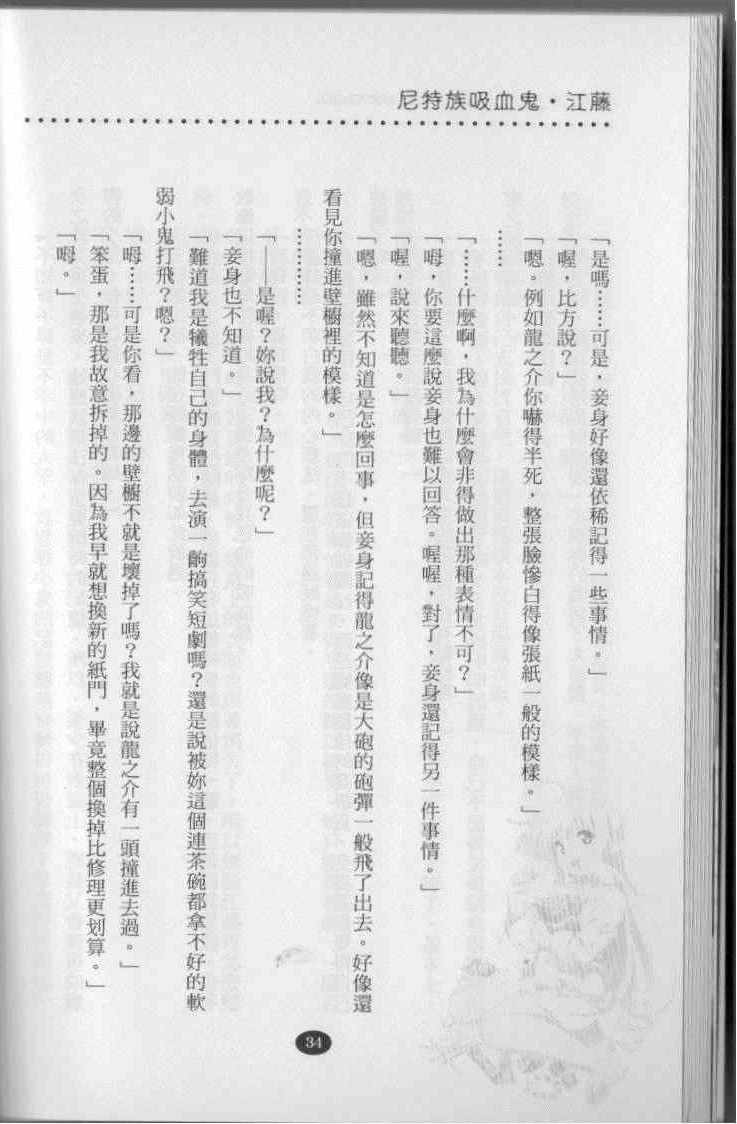 尼特族吸血鬼・江藤
「是嗎……可是，妾身好像還依稀記得一些事情。」
「喔，比方說？」
「嗯。例如龍之介你嚇得半死，整張臉慘白得像張紙一般的模樣。」
……
「……什麼啊，我為什麼會非得做出那種表情不可？」
「呣，你要這麼說妾身也難以回答。喔喔，對了，妾身還記得另一件事情。」
「喔，說來聽聽。」
「嗯，雖然不知道是怎麼回事，但妾身記得龍之介像是大砲的砲彈一般飛了出去。好像還
看見你撞進壁櫥裡的模樣。」
…………
「——是喔？妳說我？為什麼呢？」
「妾身也不知道。」
「難道我是犧牲自己的身體，去演一齣搞笑短劇嗎？還是說被妳這個連茶碗都拿不好的軟
弱小鬼打飛？嗯？」
「呣……可是你看，那邊的壁櫥不就是壞掉了嗎？我就是說龍之介有一頭撞進去過。」
「笨蛋，那是我故意拆掉的。因為我早就想換新的紙門，畢竟整個換掉比修理更划算。」
「呣。」
34